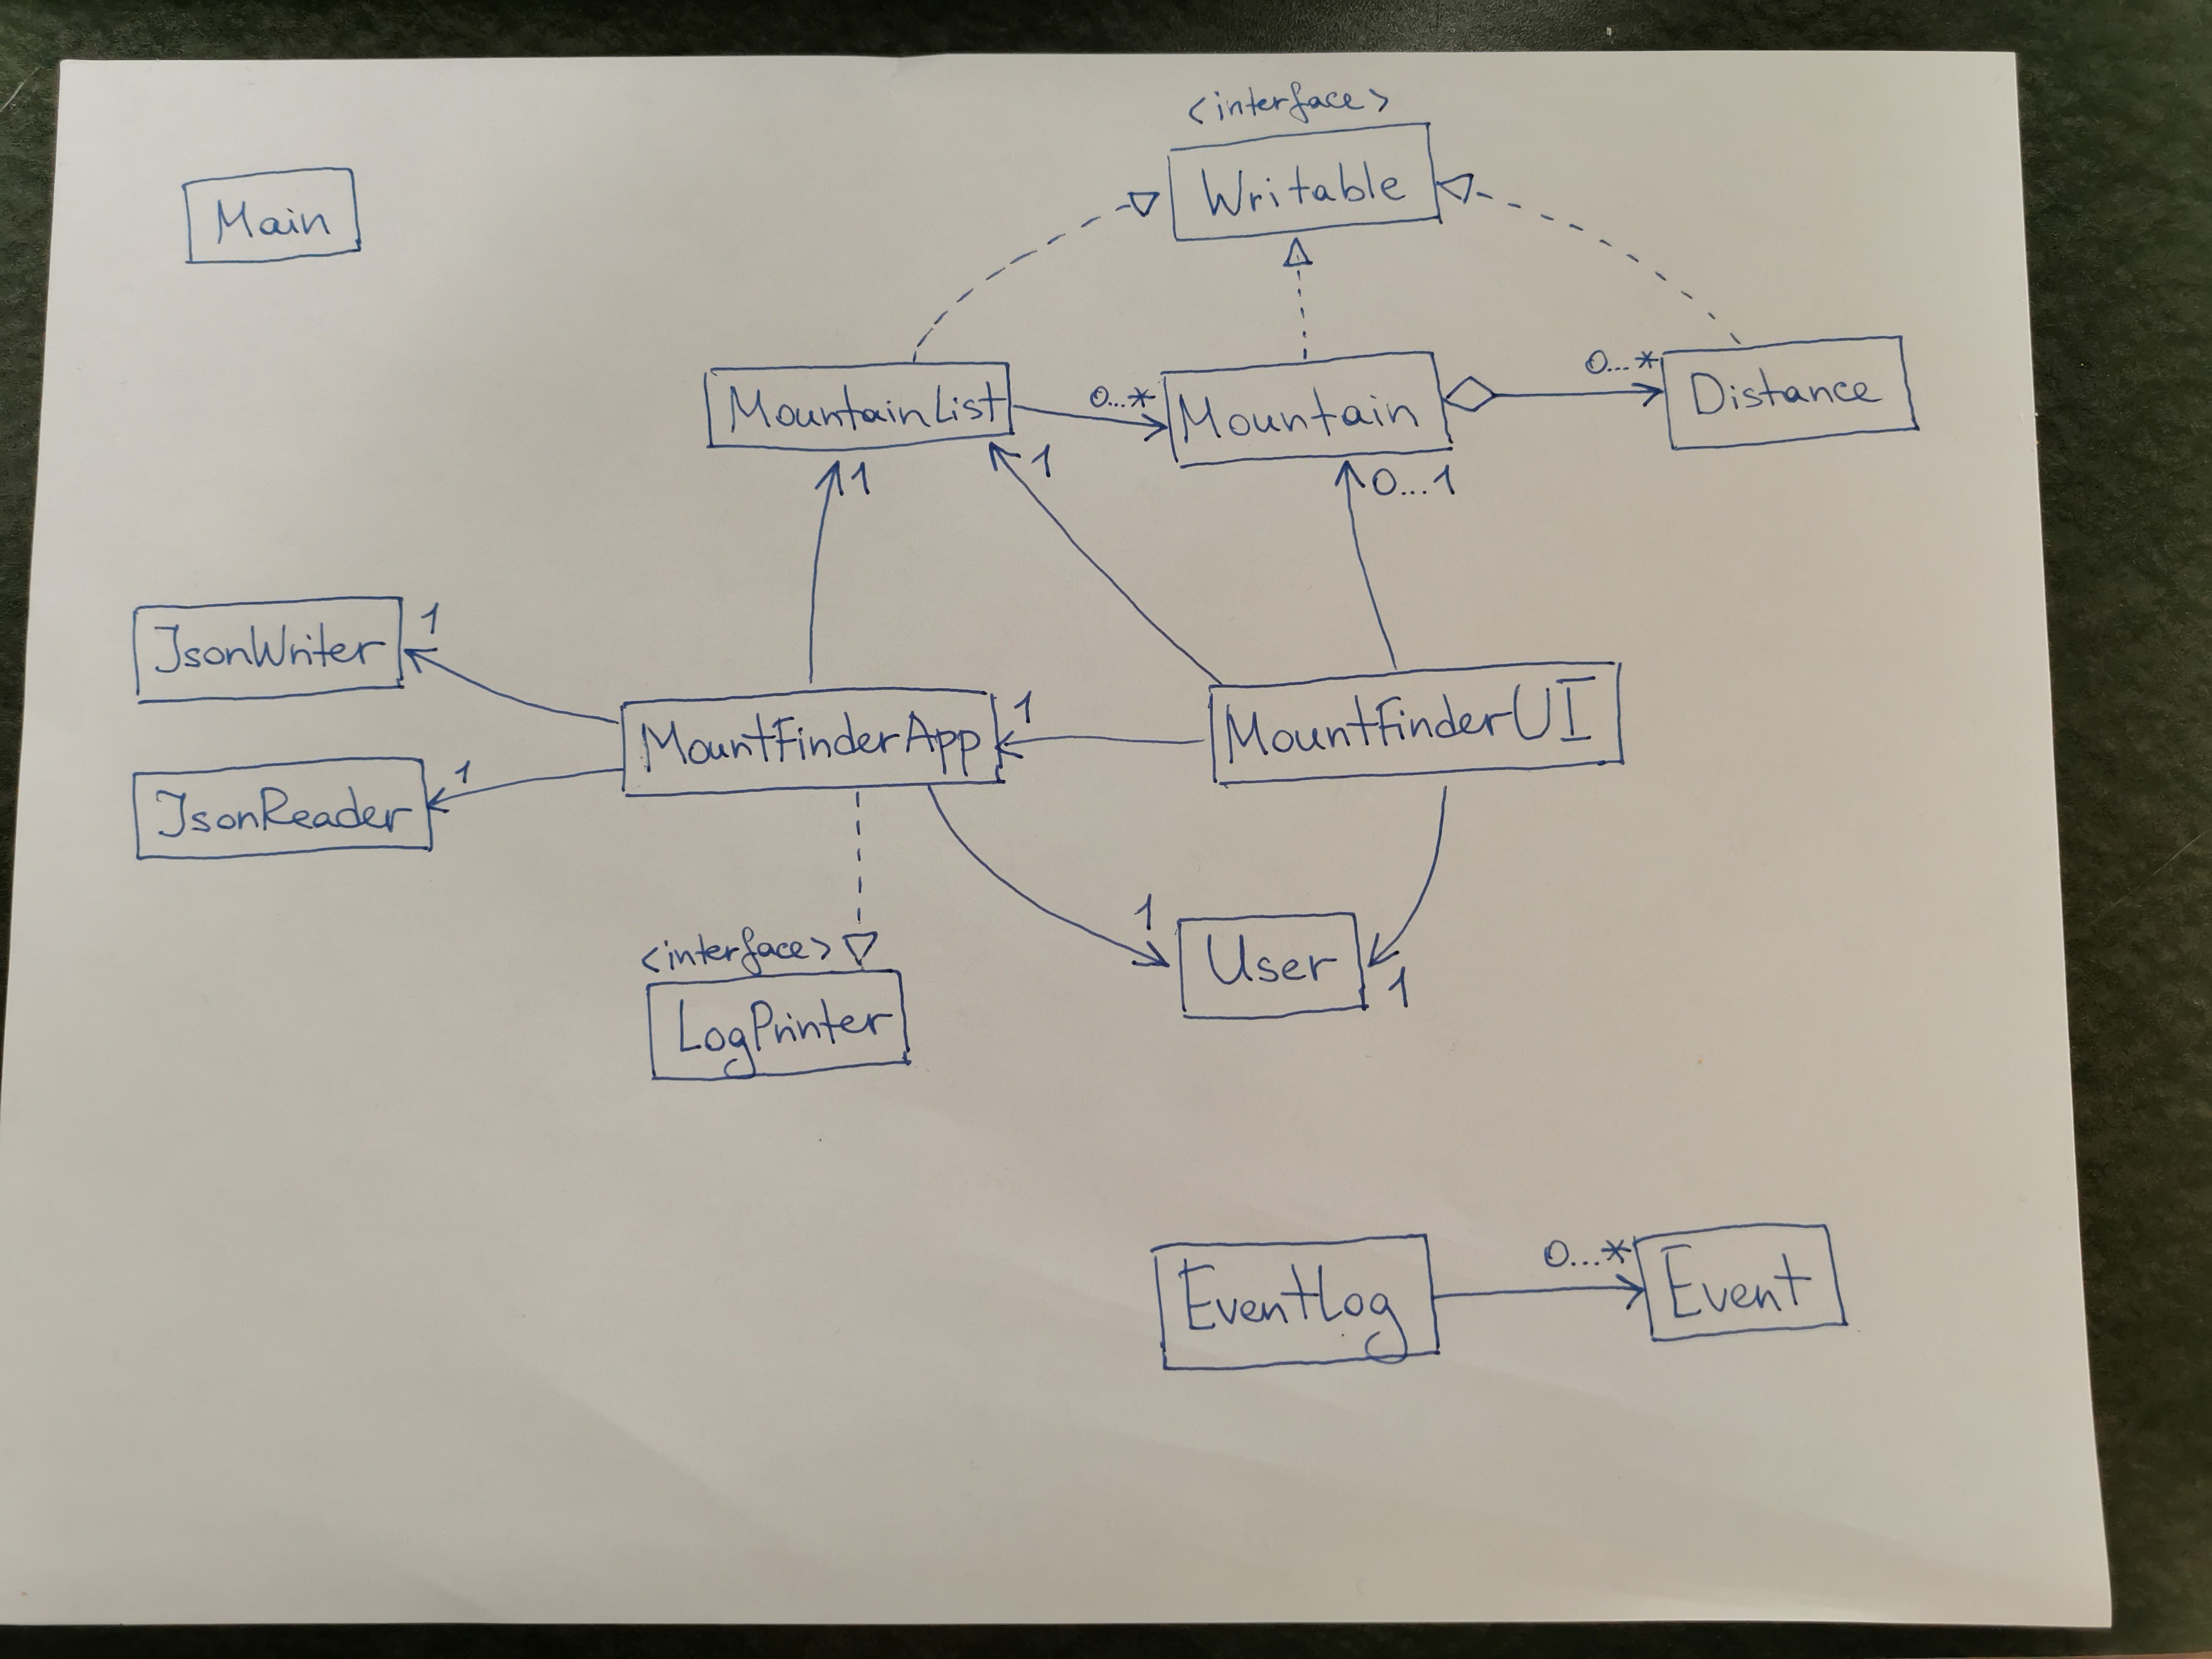 <interface>
Writable
Main
MountainList
0...*
Mountain
0...*
Distance
1
1
0...1
JsonWriter
1
MountFinderApp
1
MountFinderUI
JsonReader
1
<interface>
LogPrinter
1
User
1
EventLog
0...*
Event